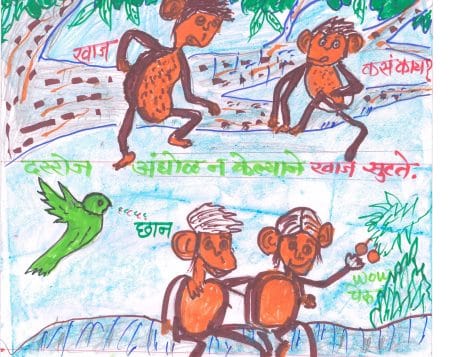 खाज
कसं काय?
दररोज अंघोळ न केल्याने खाज सुटते.
छान
wow
पेरू